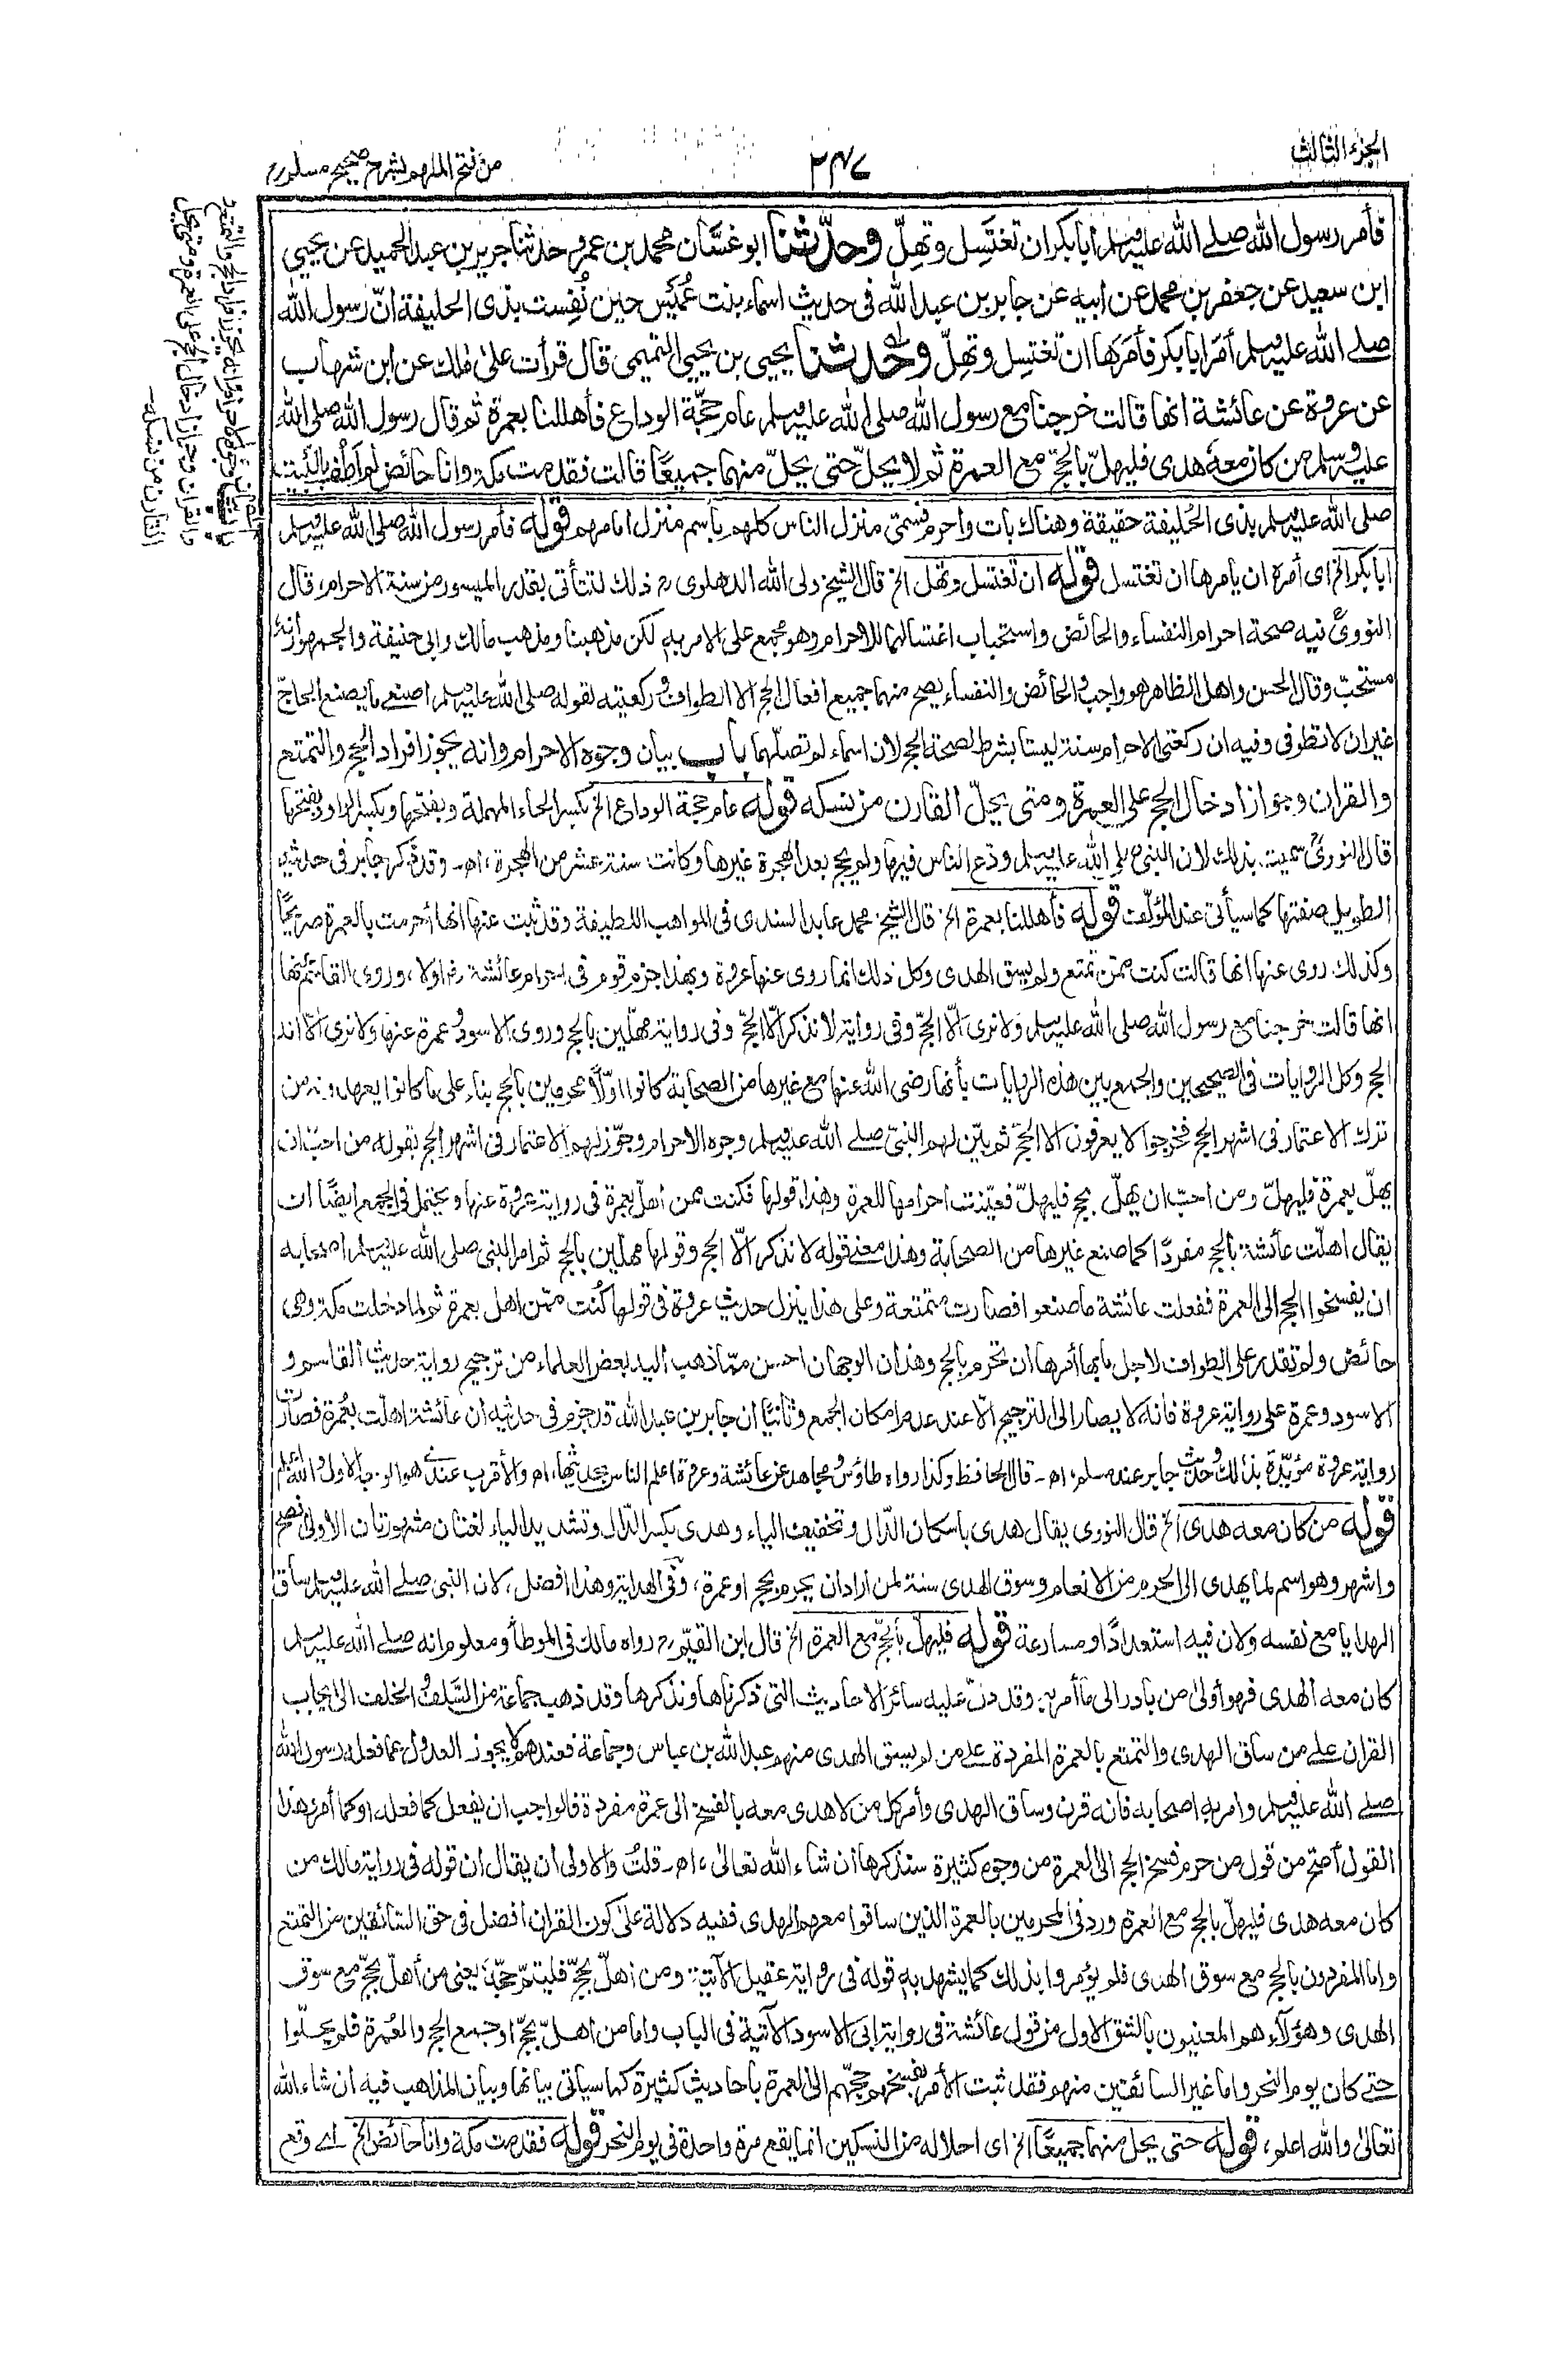 الجزء الثالث
٢٤٧
من فتح الملهم بشرح صحيح مسلم
فأمر رسول الله صلے الله عليه وسلم ابا بكر ان تغتسل وتهلّ وحدّثنا ابو غسّان محمد بن عمرو حدثنا جرير بن عبد الحميد عن يحيي
ابن سعيد عن جعفر بن محمد عن ابيه عن جابر بن عبد الله فى حديث اسماء بنت عُمَيس حين نُفِست بذى الحليفة انّ رسول الله
صلے الله عليه وسلم أمَر ابا بكر فأمَرها ان تغتسل وتهلّ وحدثنا يحيى بن يحيي التميمى قال قرأت علىٰ مٰلك عن ابن شهاب
عن عروة عن عائشة انها قالت خرجنا مع رسول الله صلى الله عليه وسلم عام حَجّة الوداع فأهللنا بعمرة ثم قال رسول الله صلى الله
عليه وسلم من كان معه هدى فليهلّ بالحجّ مع العمرة ثم لا يحلّ حتى يحلّ منهما جميعًا قالت فقدمت مكة وانا حائض لم أطُف بالبيت
باب بيان وجوه الاحرام وانه يجوز افراد الحج والتمتع
والقران وجواز ادخال الحج على العمرة ومتى يحل
القارن من نسكه
صلى الله عليه وسلم بذى الحُليفة حقيقة وهناك بات واحرم فسمّى منزل الناس كلهم بأسم منزل امامهم قوله فأمر رسول الله صلى الله عليه وسلم
ابا بكر الخ اى أمره ان يأمرها ان تغتسل قوله ان تغتسل وتهل الخ قال الشيخ ولى الله الدهلوى ؒ ذلك لتتأتى بقدر الميسور من سنة الاحرام، قال
النووىؒ فيه صحة احرام النفساء والحائض واستحباب اغتسالهما للاحرام وهو مجمع على الامر به لكن مذهبنا ومذهب مالك وابى حنيفة والجمهور انه
مستحبّ وقال الحسن واهل الظاهر هو واجب والحائض والنفساء يصح منهما جميع افعال الحج الا الطواف وركعتيه لقوله صلى الله عليه وسلم اصنعى ما يصنع الحاجّ
غير ان لا تطوفى وفيه ان ركعتى الاحرام سنة ليستا بشرط لصحة الحج لان اسماء لم تصلّهما باب بيان وجوه الاحرام وانه يجوز افراد الحج والتمتع
والقران وجواز ادخال الحج على العمرة ومتى يحلّ القارن من نسكه قوله عام حجة الوداع الخ بكسر الحاء المهملة وبفتحها وبكسر الواو وبفتحها
قال النووىؒ سميت بذلك لان النبى صلى الله عليه وسلم ودّع الناس فيها ولم يحج بعد الهجرة غيرها وكانت سنة عشر من الهجرة، اھ۔ وقد ذكر جابر فى حديثه
الطويل صفتها كما سيأتى عند المؤلّف قوله فأهللنا بعمرة الخ قال الشيخ محمد عابد السندى فى المواهب اللطيفة وقد ثبت عنها انها أحرمت بالعمرة صريحًا
وكذلك روى عنها انها قالت كنت ممّن تمتع ولم يسق الهدى وكل ذلك انما روى عنها عروة وبهذا جزم قوم فى احرام عائشة ؓ اولا، وروى القاسم عنها
انها قالت خرجنا مع رسول الله صلى الله عليه وسلم ولا نرى الّا الحجّ وفى رواية لا نذكر الّا الحجّ وفى رواية مهلّين بالحج وروى الاسود وعمرة عنها ولا نرى الّا انه
الحج وكل الروايات فى الصحيحين والجمع بين هذه الروايات بأنها رضى الله عنها مع غيرها من الصحابة كانوا اوّلًا محرمين بالحج بناء على ما كانوا يعهدونه من
ترك الاعتمار فى اشهر الحج فخرجوا لا يعرفون الا الحجّ ثم بيّن لهم النبىّ صلے الله عليه وسلم وجوه الاحرام وجوّز لهم الاعتمار فى اشهر الحج بقوله من احبّ ان
يهلّ بعمرة فليهلّ ومن احبّ ان يهلّ بحج فليهلّ فعيّنت احرامها للعمرة وهذا قولها فكنت ممن اهلّ بعمرة فى رواية عروة عنها ويحتمل فى الجمع ايضًا ان
يقال اهلّت عائشة بالحج مفردًا كما صنع غيرها من الصحابة وهذا معنے قوله لا نذكر الّا الحج وقولها مهلّين بالحج ثم امر النبى صلى الله عليه وسلم اصحابه
ان يفسخوا الحج الى العمرة ففعلت عائشة ما صنعوا فصارت متمتعة وعلى هذا ينزل حديث عروة فى قولها كُنت ممّن اهل بعمرة ثم لما دخلت مكة وهى
حائض ولم تقدر على الطواف لاجل ما بها أمرها ان تحرم بالحج وهذان الوجهان احسن ممّا ذهب اليه بعض العلماء من ترجيح رواية حديث القاسم و
الاسود وعمرة على رواية عروة فانه لا يصار الى الترجيح الّا عند عدم امكان الجمع وثانيًا ان جابر بن عبد الله قد جزم فى حديثه ان عائشة اهلّت بعُمرة فصارت
رواية عروة مؤيّدة بذلك وحديث جابر عند مسلم، اھ۔ قال الحافظ وكذا رواه طاؤس ومجاهد عن عائشة وعروة اعلم الناس بحديثها، اھ والأقرب عندى هو الوجه الاول والله اعلم
قوله من كان معه هدى الخ قال النووى يقال هدى باسكان الدّال وتخفيف الياء وهدى بكسر الدّال وتشديد الياء لغتان مشهورتان الاولى افصح
واشهر وهو اسم لما يهدى الى الحرم من الانعام وسوق الهدى سنة لمن اراد ان يحرم بحج او عمرة، وفى الهداية وهذا افضل، لان النبى صلے الله عليه وسلم ساق
الهدايا مع نفسه ولان فيه استعدادًا ومسارعة قوله فليهلّ بالحجّ مع العمرة الخ قال ابن القيّم ؒ رواه مالك فى الموطأ ومعلوم انه صلے الله عليه وسلم
كان معه الهدى فهو أولىٰ من بادر الى ما أمر به وقد دلّ عليه سائر الاحاديث التى ذكرناها ونذكرها وقد ذهب جماعة من السّلف والخلف الى ايجاب
القران علے من ساق الهدى والتمتع بالعمرة المفردة علے من لم يسق الهدى منهم عبد الله بن عباس وجماعة فعندهم لا يجوز العدول عما فعله رسول الله
صلے الله عليه وسلم وامر به اصحابه فانه قرن وساق الهدى وأمر كل من لا هدى معه بالفسخ الى عمرة مفردة فالواجب ان يفعل كما فعله او كما أمر وهذا
القول أصحّ من قول من حرم فسخ الحج الى العمرة من وجوه كثيرة سنذكرها ان شاء الله تعالىٰ، اھ۔ قلتُ والاولى أن يقال ان قوله فى رواية مالك من
كان معه هدى فليهلّ بالحج مع العمرة ورد فى المحرمين بالعمرة الذين ساقوا معهم الهدى ففيه دلالة علىٰ كون القران افضل فى حق السّائقين من التمتع
واما المفردون بالحج مع سوق الهدى فلم يؤمروا بذلك كما يشهد به قوله فى رواية عقيل الآتية ومن اهلّ بحجّ فليتمّ حجّه يعنى من أهلّ بحجّ مع سوق
الهدى وهؤلاء هم المعنيون بالشق الاول من قول عائشة فى رواية ابى الاسود الآتية فى الباب واما من اهلّ بحجّ او جمع الحج والعُمرة فلم يحلّوا
حتے كان يوم النحر واما غير السائقين منهم فقد ثبت الأمر بفسخهم حجّهم الى العمرة بأحاديث كثيرة كما سياتى بيانها وبيان المذاهب فيه ان شاء الله
تعالىٰ والله اعلم، قوله حتى يحل منهما جميعًا الخ اى احلاله من النسكين انما يقع مرة واحدة فى يوم النحر قوله فقدمت مكة وانا حائض الخ اے وقع